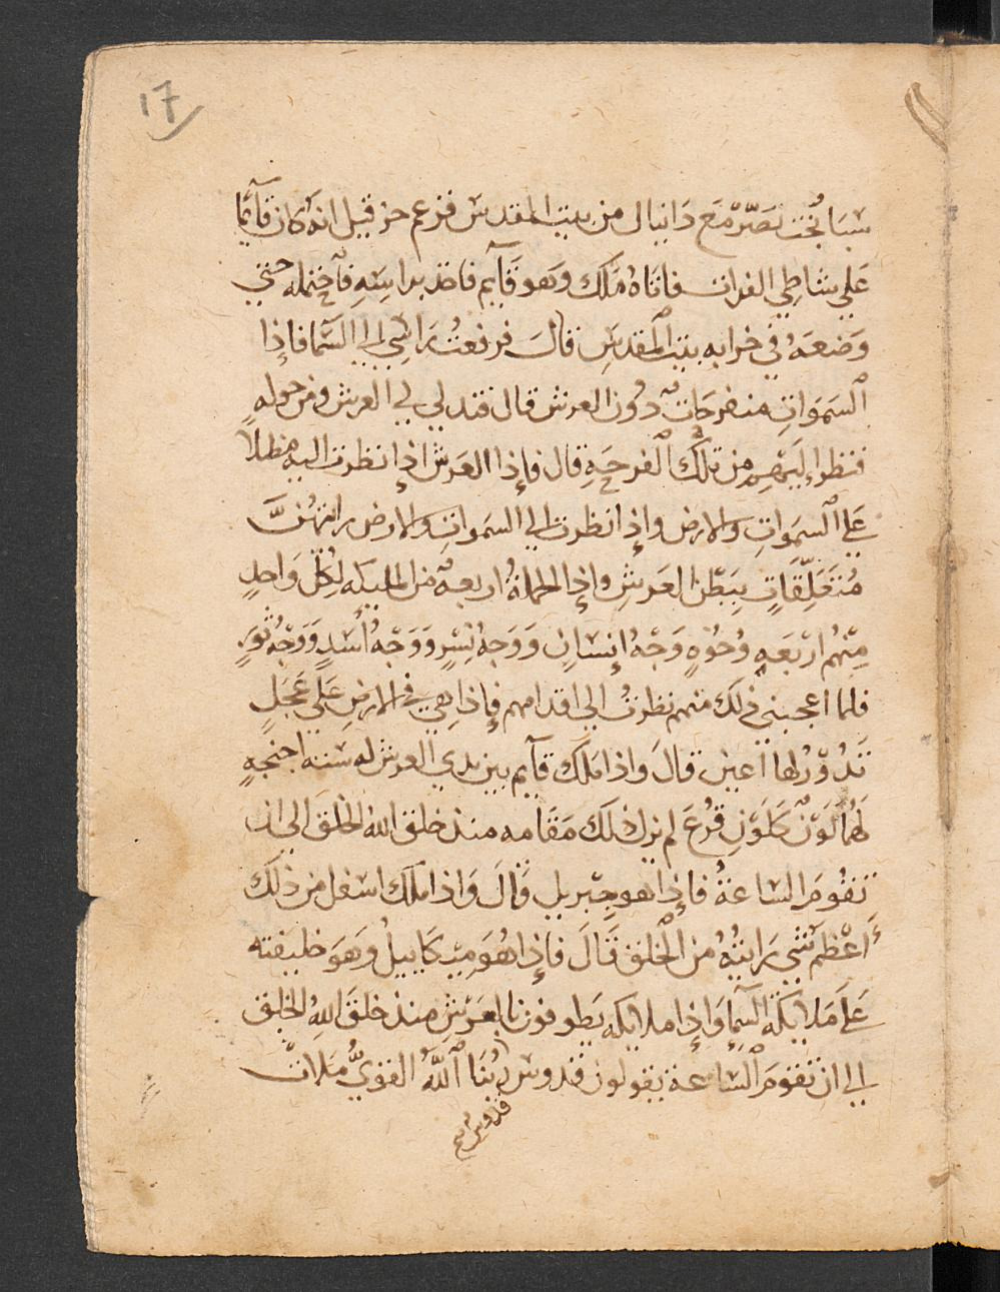 17
سَبَا بُخْت نَصّر مَعَ دَانيال من بيت المقدس فزعم حزقيل انه كان قآئما
عَلي شاطِي الفرات فاتَاهُ مَلَك وَهو قَآيم فاخذ براسِهِ فاحتمله حتي
وَضعَهُ في خرابه بيت المقدسِ قالَ فرفعتُ رَاسِي الي السَّما فاذا
السَمَوَات منفرجَات دُون العرش قال فتدلي لي العرش ومن حوله
فنظرا ليهم من تلكَ الفرجَةِ قال فاِذا العَرش اذا نظرت اليه مظلا
عَلَي السمَواتِ والارض واِذا نظرت الي السمَوات والارض رايتهُنَّ
مُتعَلِّقَاتٍ بِبَطن العَرشِ واِذا الحملةُ اربعة من المليكه لِكُل وَاحدٍ
مِنْهُم ارْبَعَهِ وُجُوْهٍ وَجْهُ اِنسَانٍ وَوَجهُ نِسْرٍ وَوَجْهُ أَسَدٍ وَوَجْهُ ثَورٍ
فلما اعجبني ذلك منهم نظرتُ الي اقدامهم فاِذا هي في الارضِ عَلَي عَجَلٍ
تَدُوْرُ لها اَعين قالَ واذا مَلَك قآيم بين يدي العرش له ستة اجنحهٍ
لَهُا لَوْن كَلَوْنِ قَزُعَ لم يزل ذلك مَقَامه منذ خلق اللهُ الخلقَ الي ان
تقُومَ السَاعةُ فاِذا هو جِبريل قالَ وَاذا مَلَك اسفل من ذلك
اَعْظَم شَي رَايتُهُ من الخلق قَالَ فاِذا هُوَ مِيْكَاييلُ وَهوَ خليفته
عَلَي مَلايكَة السَّمآ وَاِذا ملايكه يَطوفون بالعَرْشِ منذ خلقَ اللهُ الخلق
الي ان تقومَ السَاعة يقولون قدوس رَبُنَا اللهُ القويُّ مَلات
قدوس